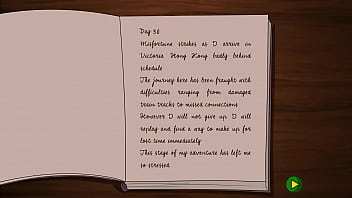 Day 36
Misfortune strikes as I arrive in
Victoria Hong Kong badly behind
schedule
The journey here has been fraught with
difficulties ranging from damaged
train tracks to missed connections
However I will not give up I will
replay and find a way to make up for
lost time immediately
This stage of my adventure has left me
so stressed